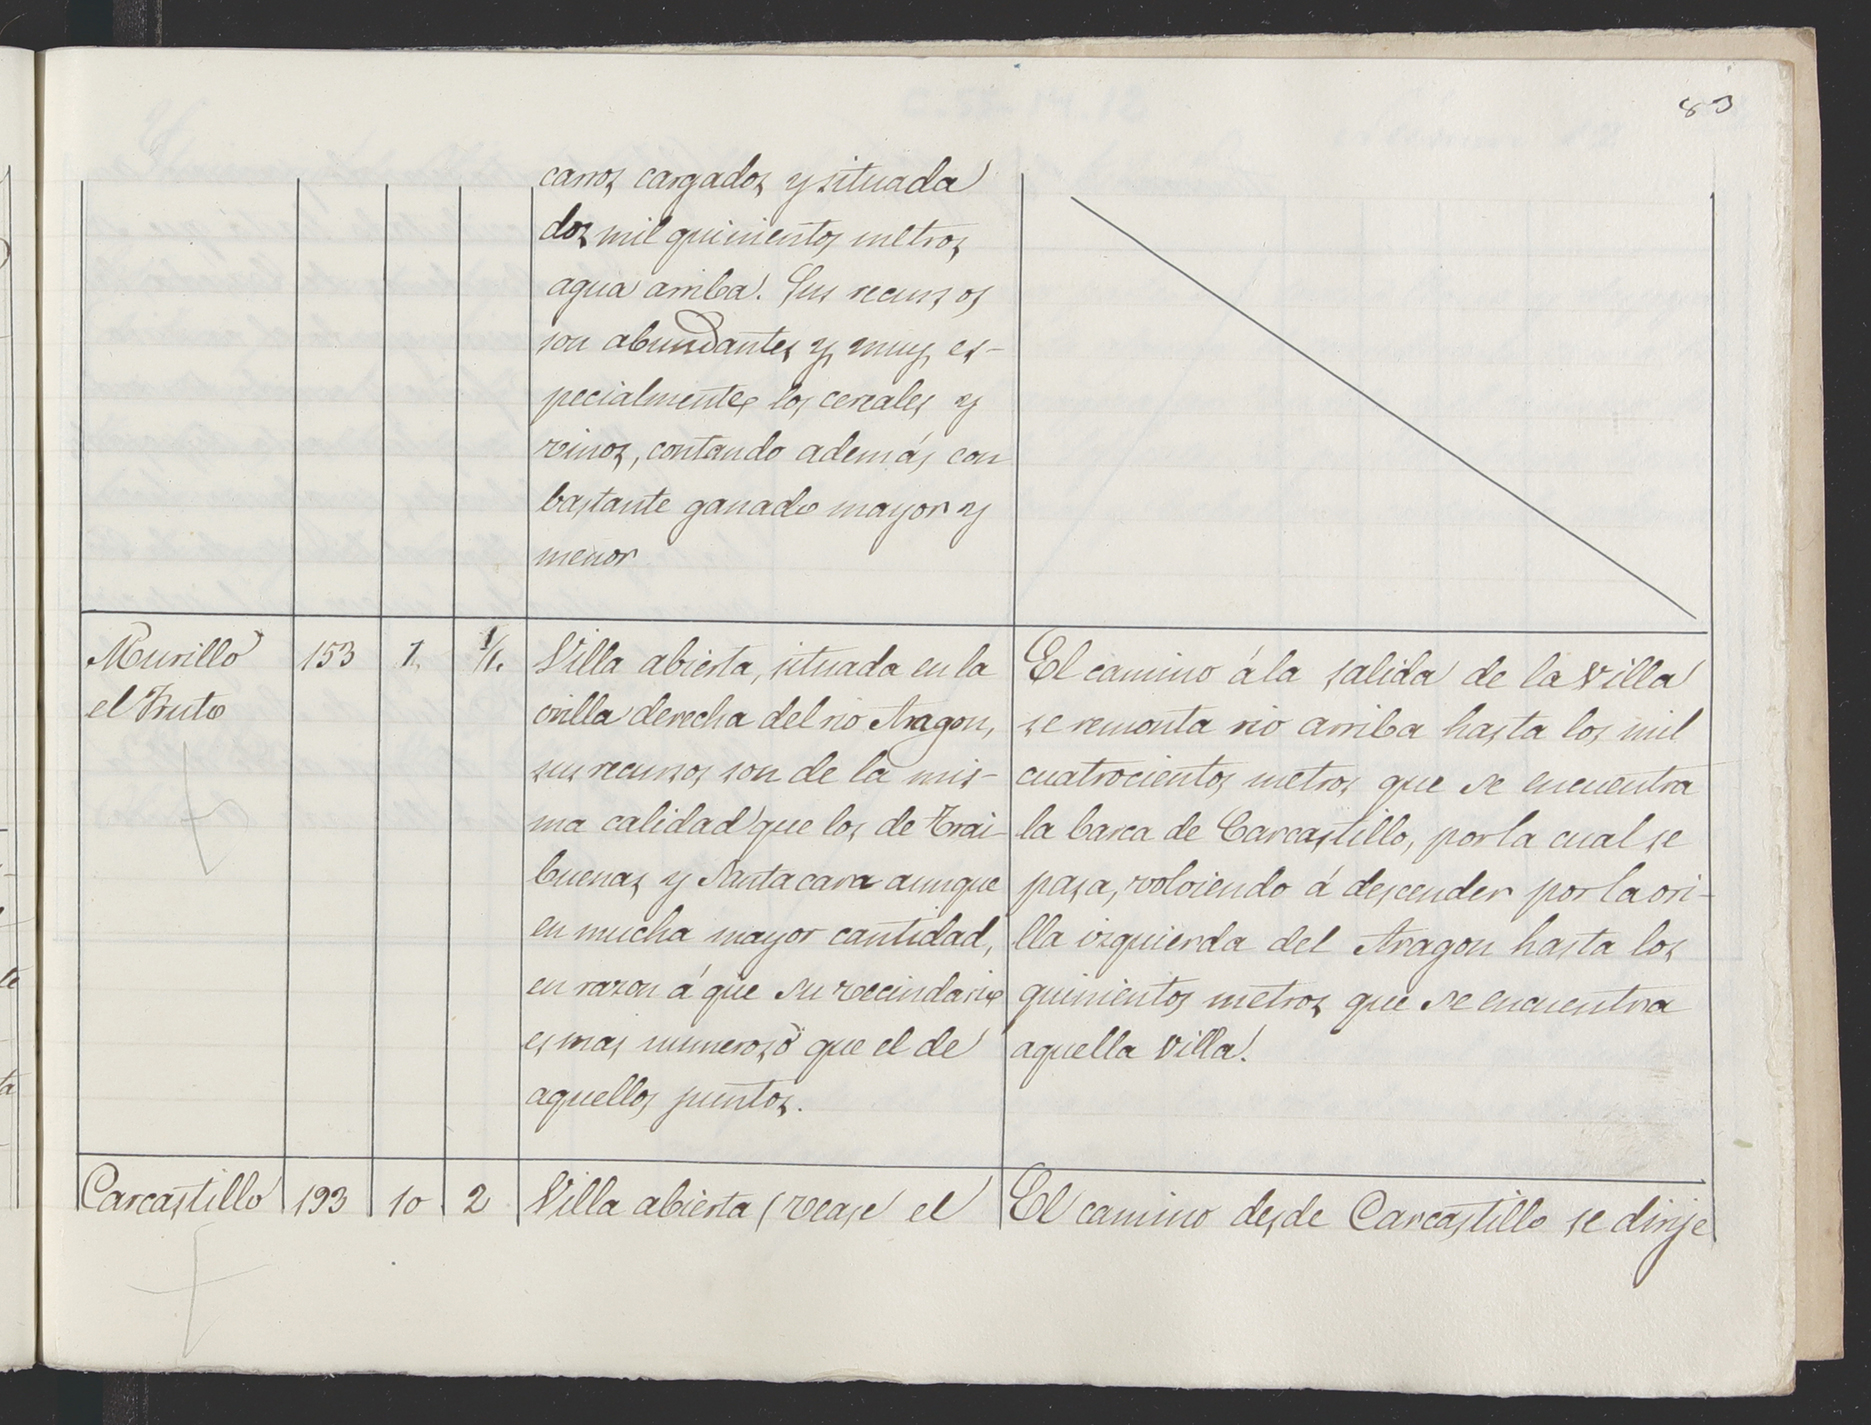 83
carros cargados y situada
dos mil quinientos metros
agua arriba. Sus recursos
son abundantes y muy es-
pecialmente los cereales y
vinos, contando además con
bastante ganado mayor y
menor
Murillo
el Fruto
153
1
Villa abierta, situada en la
orilla derecha del rio Aragon,
sus recursos son de la mis-
ma calidad que los de Trai-
buenas y Santacara aunque
en mucha mayor cantidad,
en razon á que su vecindario
es mas numeroso que el de
aquellos puntos.
El camino á la salida de la Villa
se remonta rio arriba hasta los mil
cuatrocientos metros que se encuentra
la barca de Carcastillo, por la cual se
pasa, volviendo á descender por la ori-
lla izquierda del Aragon hasta los
quinientos metros que se encuentra
aquella Villa.
Carcastillo
193
10
2
Villa abierta (vease el
El camino desde Carcastillo se dirije